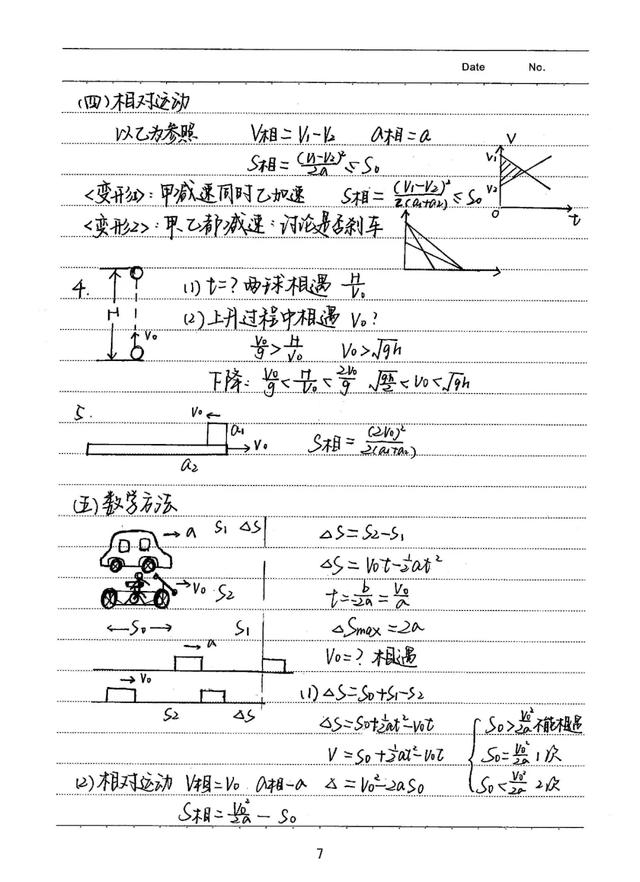 Date No.
(四)相对运动
以乙为参照 V相=V₁-V₂ a相=a
S相=(V₁-V₂)²/2a ≤ S₀
V
V₁
V₂
0 t
<变形1>:甲减速同时乙加速 S相=(V₁-V₂)²/2(a₁+a₂) ≤ S₀
<变形2>:甲、乙都减速:讨论是否刹车
4. H V₀ (1) t=? 两球相遇 H/V₀
(2)上升过程中相遇 V₀?
V₀/g > H/V₀ V₀>√gh
下降: V₀/g < H/V₀ < 2V₀/g √(gh/2) < V₀ < √gh
5. V₀ a₁ V₀ a₂ S相=(2V₀)²/2(a₁+a₂)
(五)数学方法
a S₁ ΔS ΔS=S₂-S₁
V₀ S₂ ΔS=V₀t-½at²
t=b/-2a=V₀/a
S₀ S₁ ΔSmax=2a
a V₀=? 相遇
V₀ (1) ΔS=S₀+S₁-S₂
S₂ ΔS ΔS=S₀+½at²-V₀t
S₀>V₀²/2a 不能相遇
V=S₀+½at²-V₀t S₀=V₀²/2a 1次
(2)相对运动 V相=V₀ a相-a Δ=V₀²-2aS₀ S₀<V₀²/2a 2次
S相=V₀²/2a - S₀
7